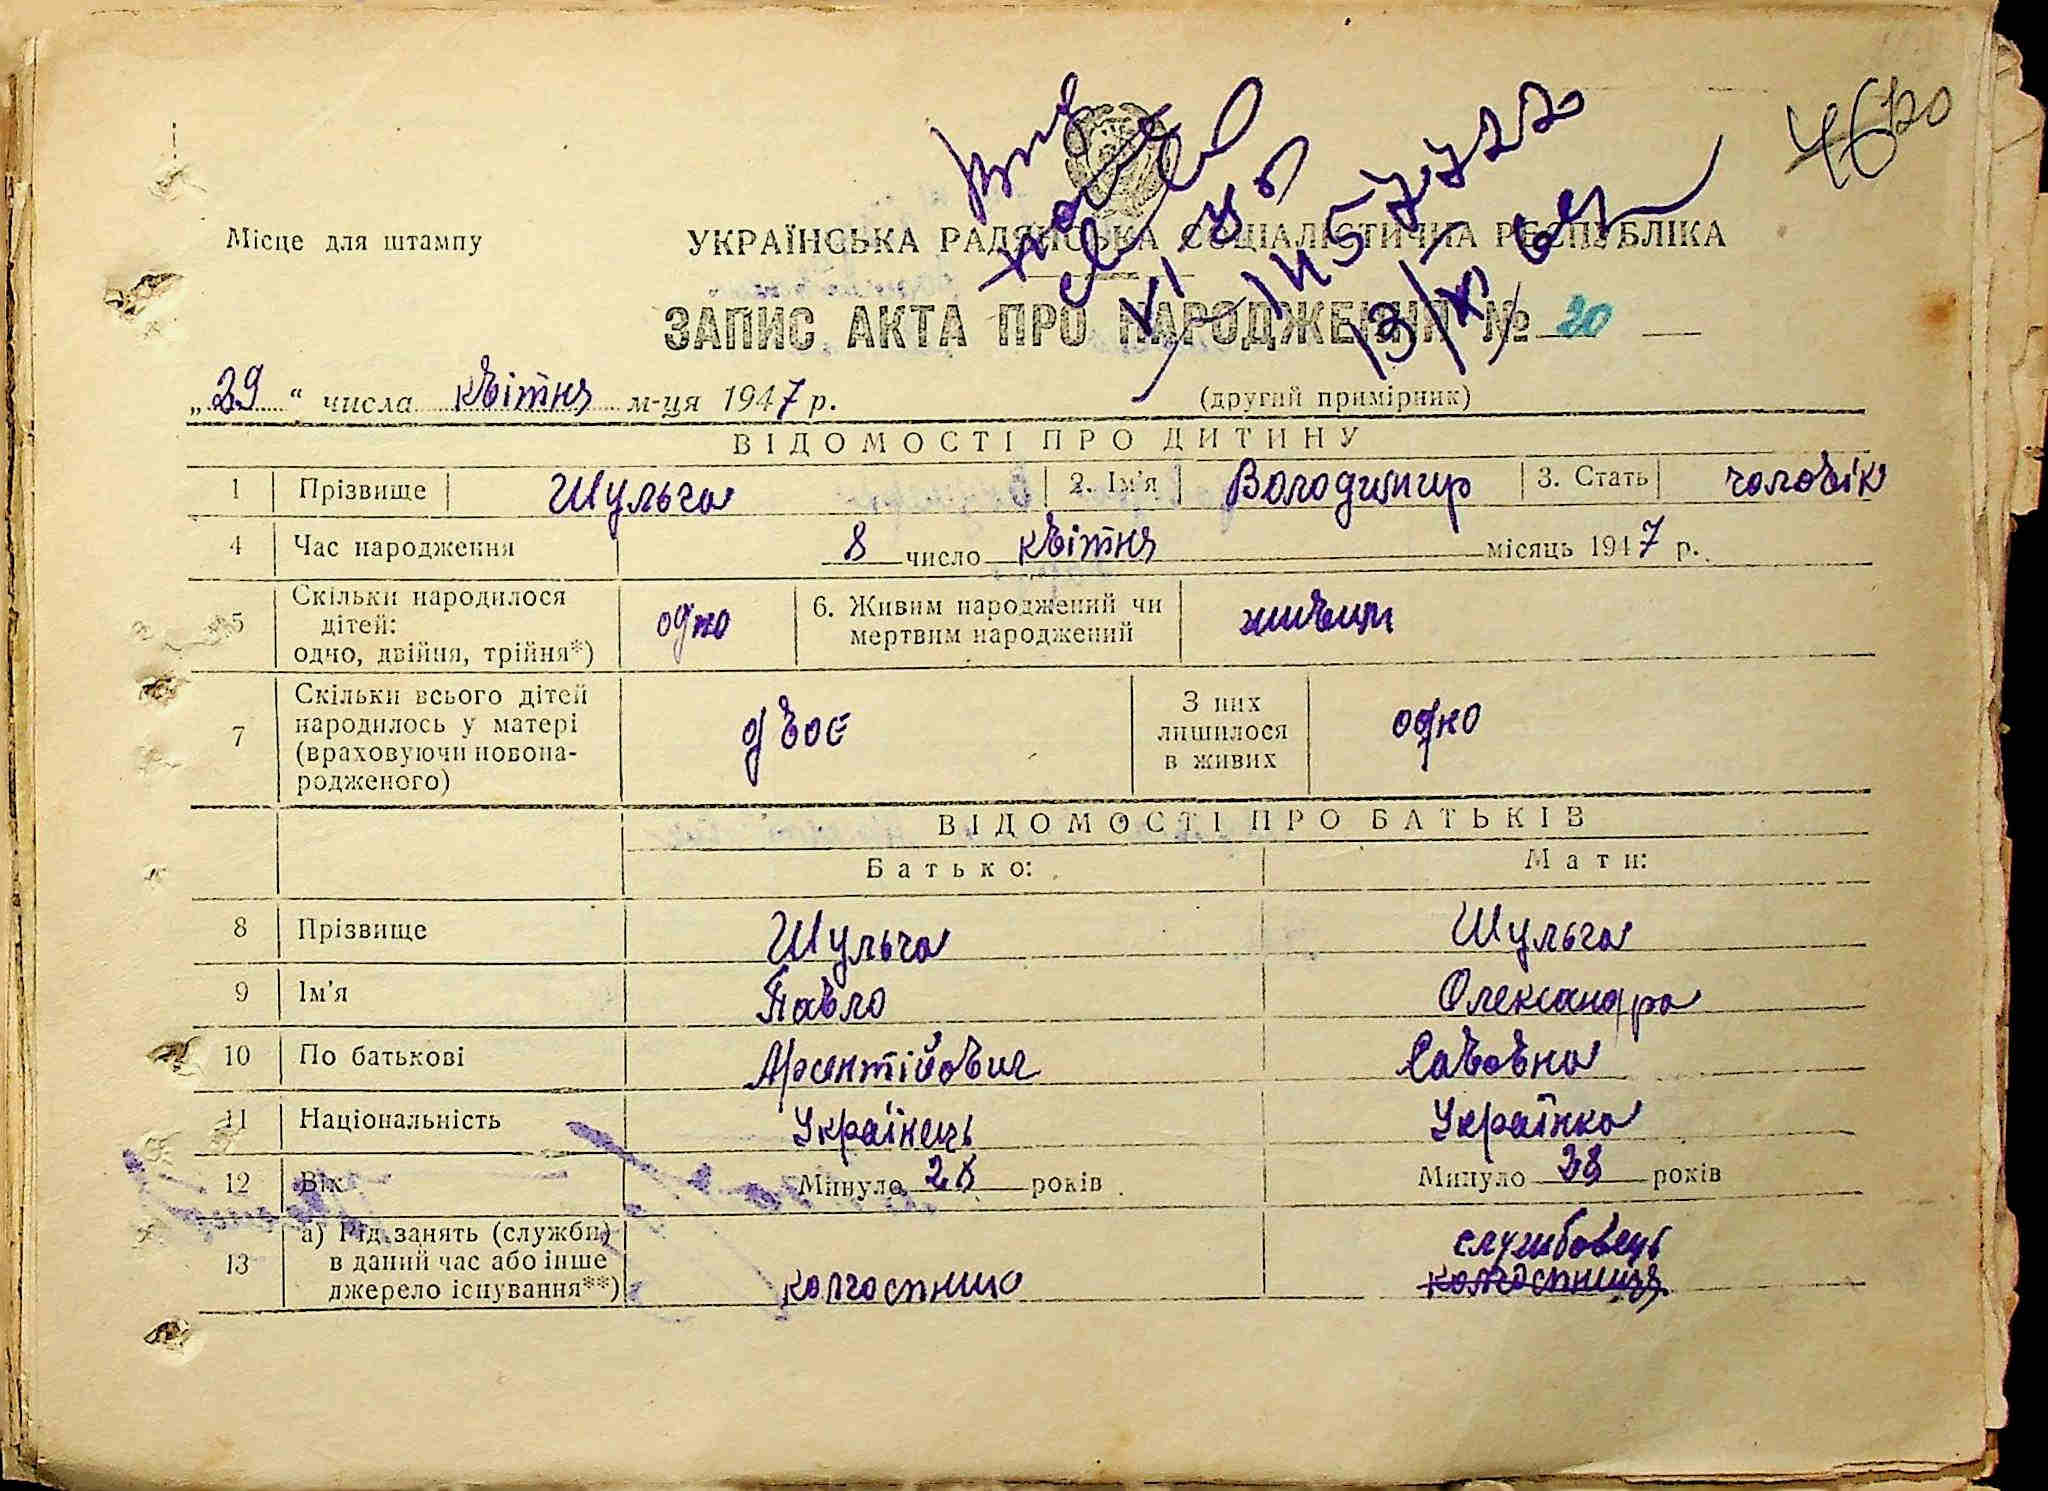 Місце для штампу
УКРАЇНСЬКА РАДЯНСЬКА СОЦІАЛІСТИЧНА РЕСПУБЛІКА
ЗАПИС АКТА ПРО НАРОДЖЕННЯ № 20
„29“ числа квітня м-ця 1947 р.
(другий примірник)
ВІДОМОСТІ ПРО ДИТИНУ
1 Прізвище Шульга 2. Ім'я Володимир 3. Стать чоловік
4 Час народження 8 число квітня місяць 1947 р.
5 Скільки народилося дітей: одно, двійня, трійня*) одно 6. Живим народжений чи мертвим народжений живим
7 Скільки всього дітей народилось у матері (враховуючи новонародженого) двоє З них лишилося в живих одно
ВІДОМОСТІ ПРО БАТЬКІВ
Батько: Мати:
8 Прізвище Шульга Шульга
9 Ім'я Павло Олександра
10 По батькові Арентійович Савовна
11 Національність Українець Українка
12 Вік Минуло років Минуло 38 років
13 а) Рід занять (служби) в даний час або інше джерело існування**) колгоспник службовець
колгоспниця